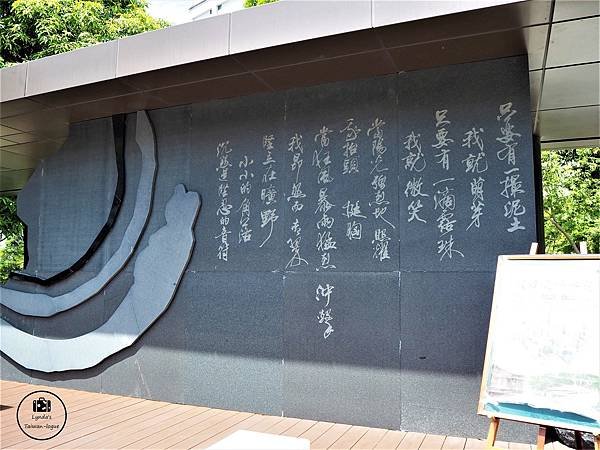 只要有一撮泥土
我就萌芽
只要有一滴露珠
我就微笑
當陽光強烈地照耀
我抬頭 挺胸
當狂風暴雨猛烈 沖擊
我昂然而
堅立在曠野
小小的角落
沉默堅忍的音符
Lynda's
Taiwan-logue